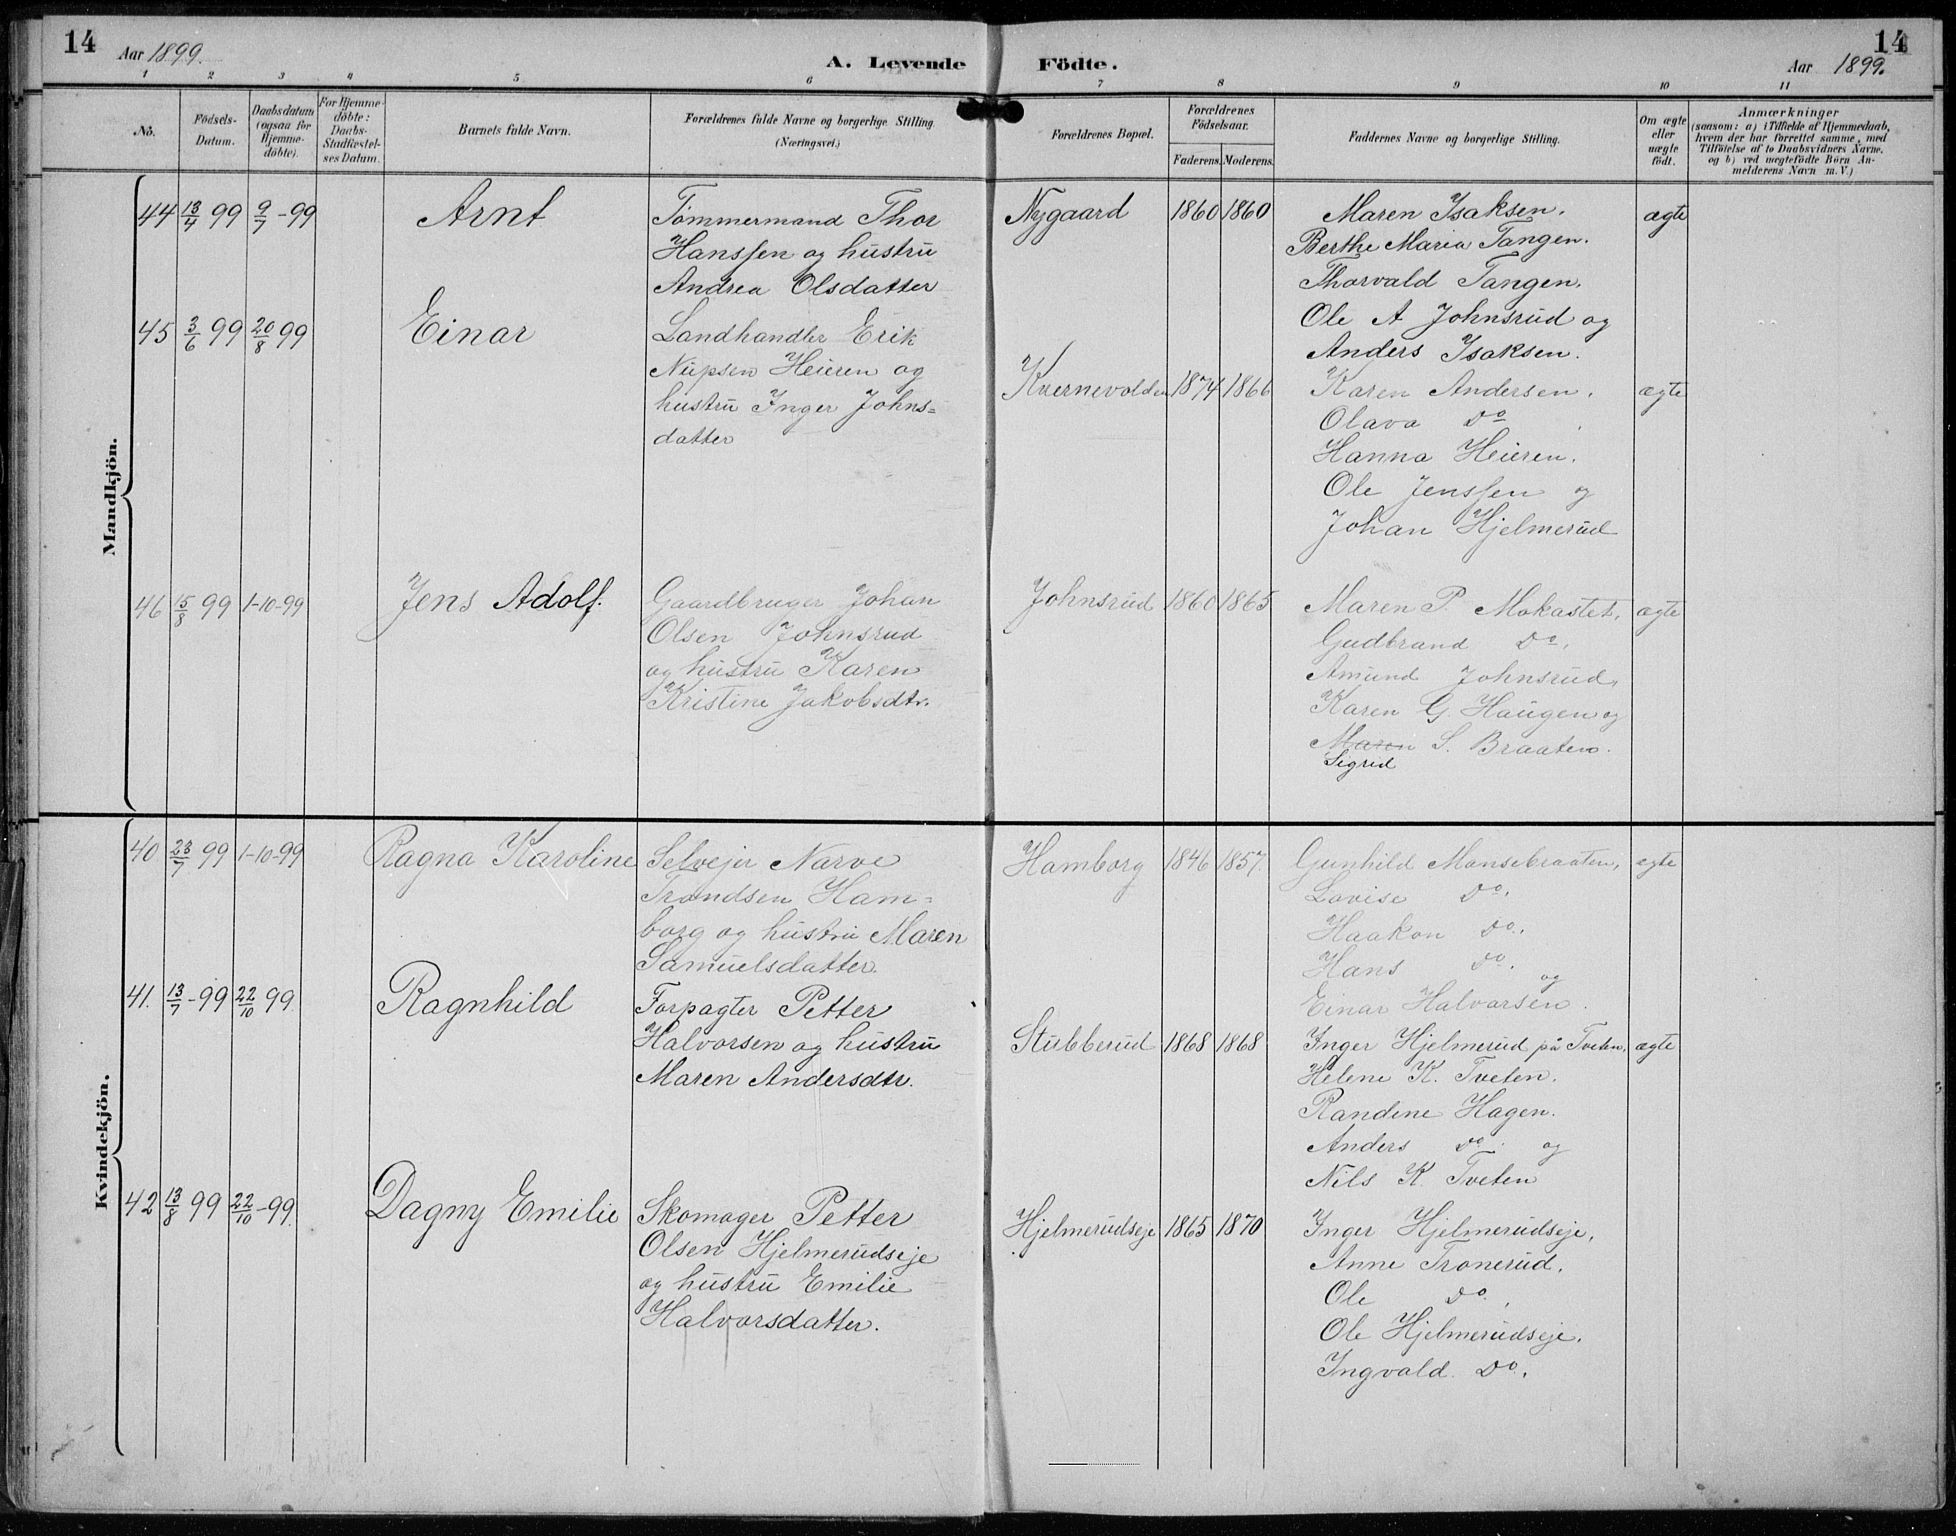 14
Aar 1899.
A. Levende Födte.
Aar 1899.
14
1 2 3 4 5 6 7 8 9 10 11
No.
Födsels-
Datum.
Daabsdatum
(ogsaa for
Hjemme-
döbte).
For Hjemme-
döbte:
Daabs-
Stadfæstel-
ses Datum.
Barnets fulde Navn.
Forældrenes fulde Navne og borgerlige Stilling
(Næringsvei.)
Forældrenes Bopæl.
Forældrenes
Födselsaar.
Faderens. Moderens.
Faddernes Navne og borgerlige Stilling.
Om ægte
eller
uægte
født.
Anmærkninger
(saasom: a) i Tilfælde af Hjemmedaab,
hvem der har forrettet samme, med
Tilföielse af to Daabsvidners Navne,
og b) ved uægtefödte Börn An-
melderens Navn m.V.)
Mandkjön.
44 13/4 99 9/7 -99 Arnt
Tömmermand Thor
Hanssen og hustru
Andrea Olsdatter
Nygaard 1860 1860
Maren Isaksen.
Berthe Maria Tangen.
Thorvald Tangen.
Ole A Johnsrud og
Anders Isaksen.
ægte
45 3/6 99 20/8 99 Einar
Landhandler Erik
Nupsen Heieren og
hustru Inger Johns=
datter
Kvernevolden 1874 1866
Karen Andersen.
Olava Do
Hanna Heieren.
Ole Jenssen og
Johan Hjelmerud
ægte
46 15/8 99 1-10-99 Jens Adolf.
Gaardbruger Johan
Olsen Johnsrud
og hustru Karen
Kristine Jakobsdtr.
Johnsrud 1860 1865
Maren P. Mokastet.
Gudbrand Do.
Amund Johnsrud,
Karen G. Haugen og
Maren S. Braaten.
Sigrid
ægte
Kvindekjön.
40 23/7 99 1-10-99 Ragna Karoline
Selvejer Narve
Trondsen Ham=
borg og hustru Maren
Samuelsdatter.
Hamborg 1846 1857.
Gunhild Monsebraaten,
Lovise Do.
Haakon Do.
Hans Do. og
Einar Halvorsen.
ægte
41. 13/7 -99 22/10 99. Ragnhild
Forpagter Petter
Halvorsen og hustru
Maren Andersdtr.
Stubberud 1868 1868
Inger Hjelmerud på Tveten,
Helene K. Tveten.
Randine Hagen.
Anders Do. og
Nils K. Tveten
ægte
42 13/8 99 22/10 -99. Dagny Emilie
Skomager Petter
Olsen Hjelmerudseje
og hustru Emilie
Halvorsdatter.
Hjelmerudseje 1865 1870
Inger Hjelmerudseje,
Anne Tronerud.
Ole Do.
Ole Hjelmerudseje.
Ingvald Do.